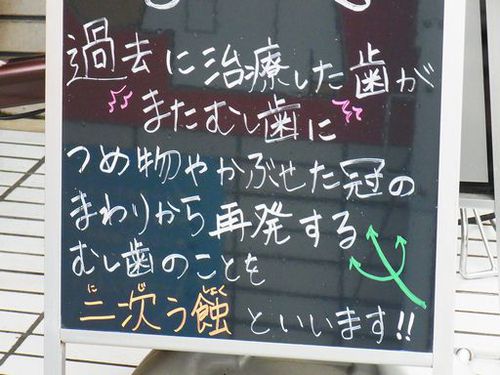 過去に治療した歯が
またむし歯に
つめ物やかぶせた冠の
まわりから再発する
むし歯のことを
に じ しょく
二次う蝕 といいます!!